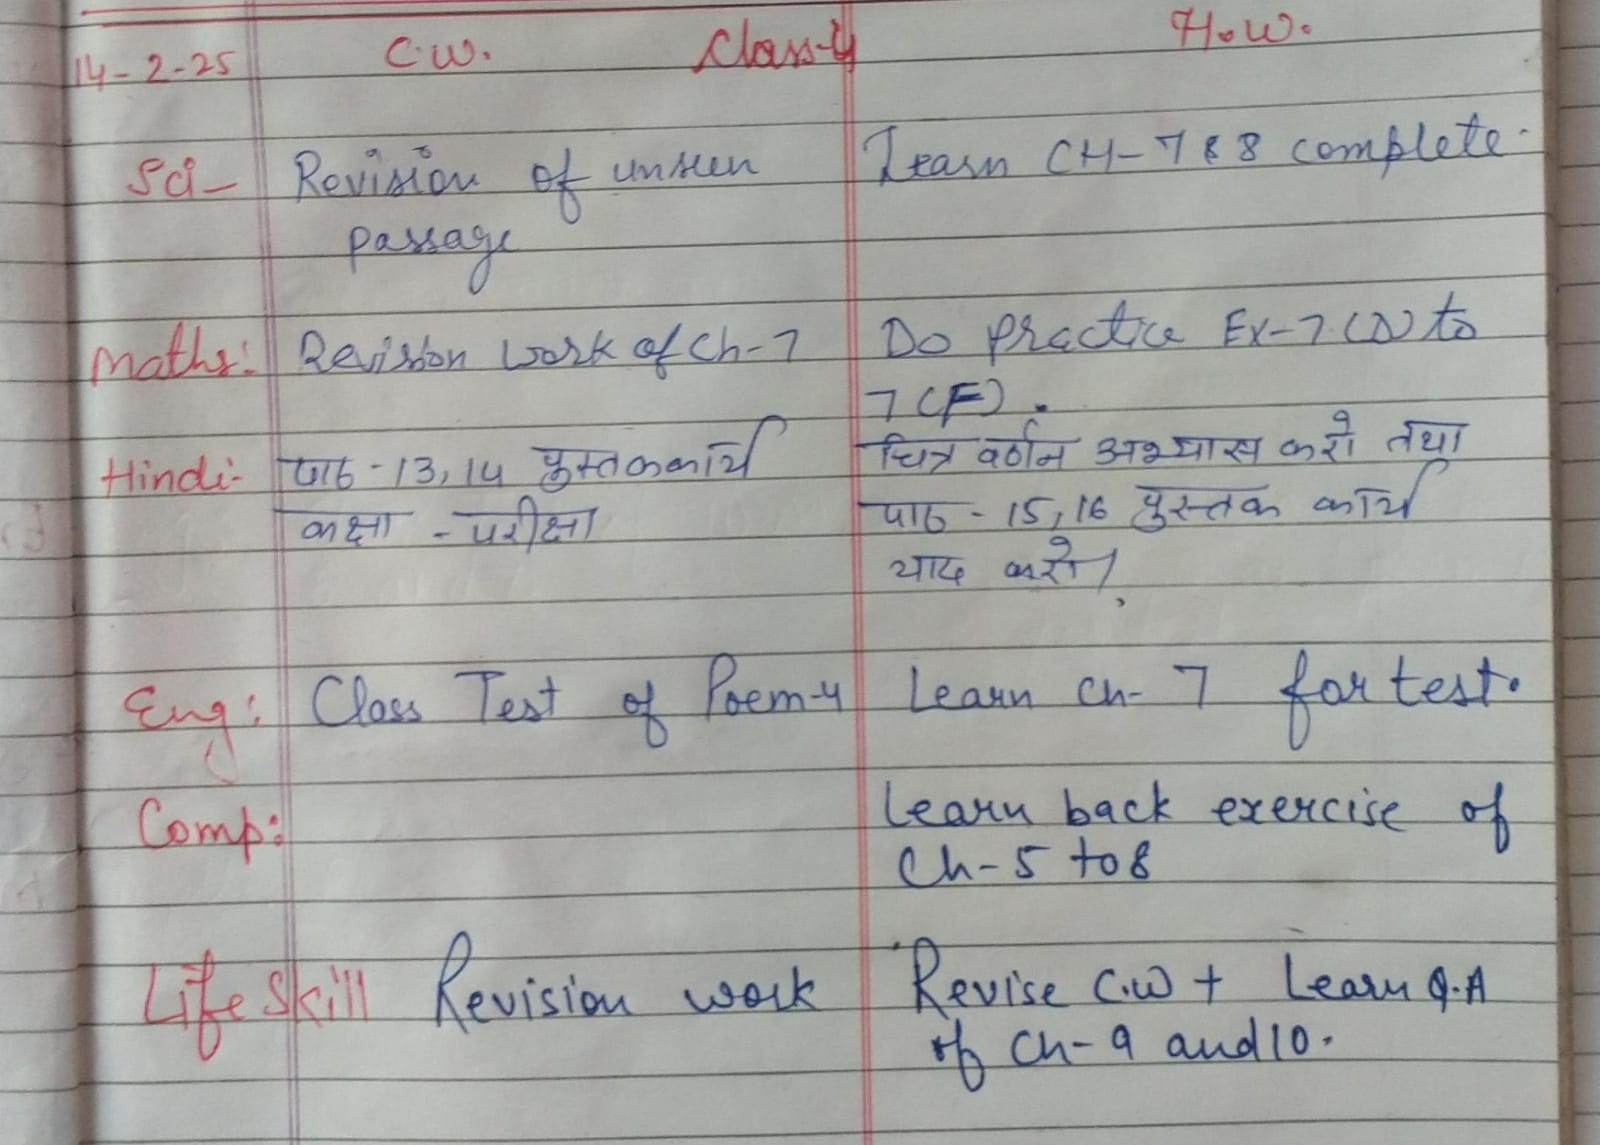 14-2-25 C.W. Class-4 H.W.
Sci- Revision of unseen Learn CH-7 & 8 complete.
passage
Maths: Revision work of Ch-7 Do practice Ex-7(D) to
7(F).
Hindi- पाठ-13,14 पुस्तककार्य चित्र वर्णन अभ्यास करो तथा
कक्षा-परीक्षा पाठ-15,16 पुस्तक कार्य
याद करो।
Eng: Class Test of Poem-4 Learn Ch-7 for test.
Comp: Learn back exercise of
Ch-5 to 8
Life Skill Revision work Revise C.W + Learn Q.A
of Ch-9 and 10.